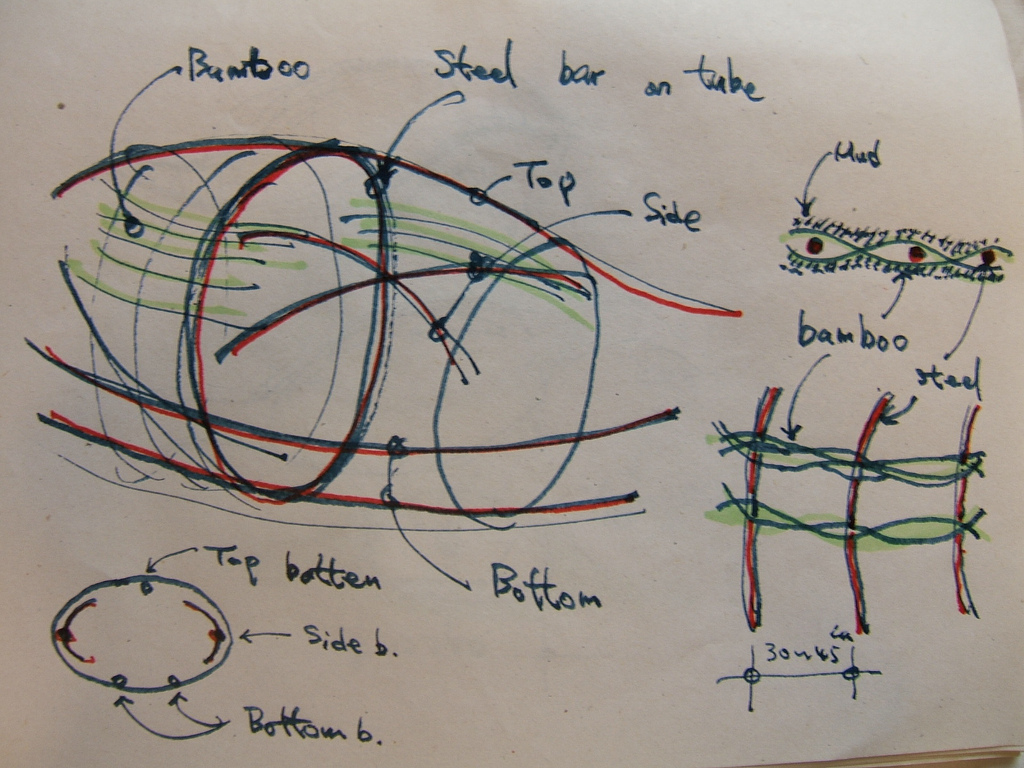 Bamboo
Steel bar or tube
Top
Side
Mud
bamboo
steel
Bottom
Top batten
Side b.
Bottom b.
30~45